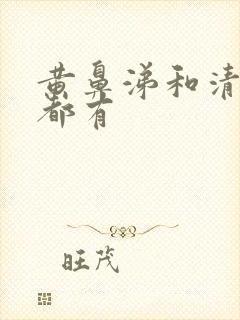 黄鼻涕和清
都有
旺茂